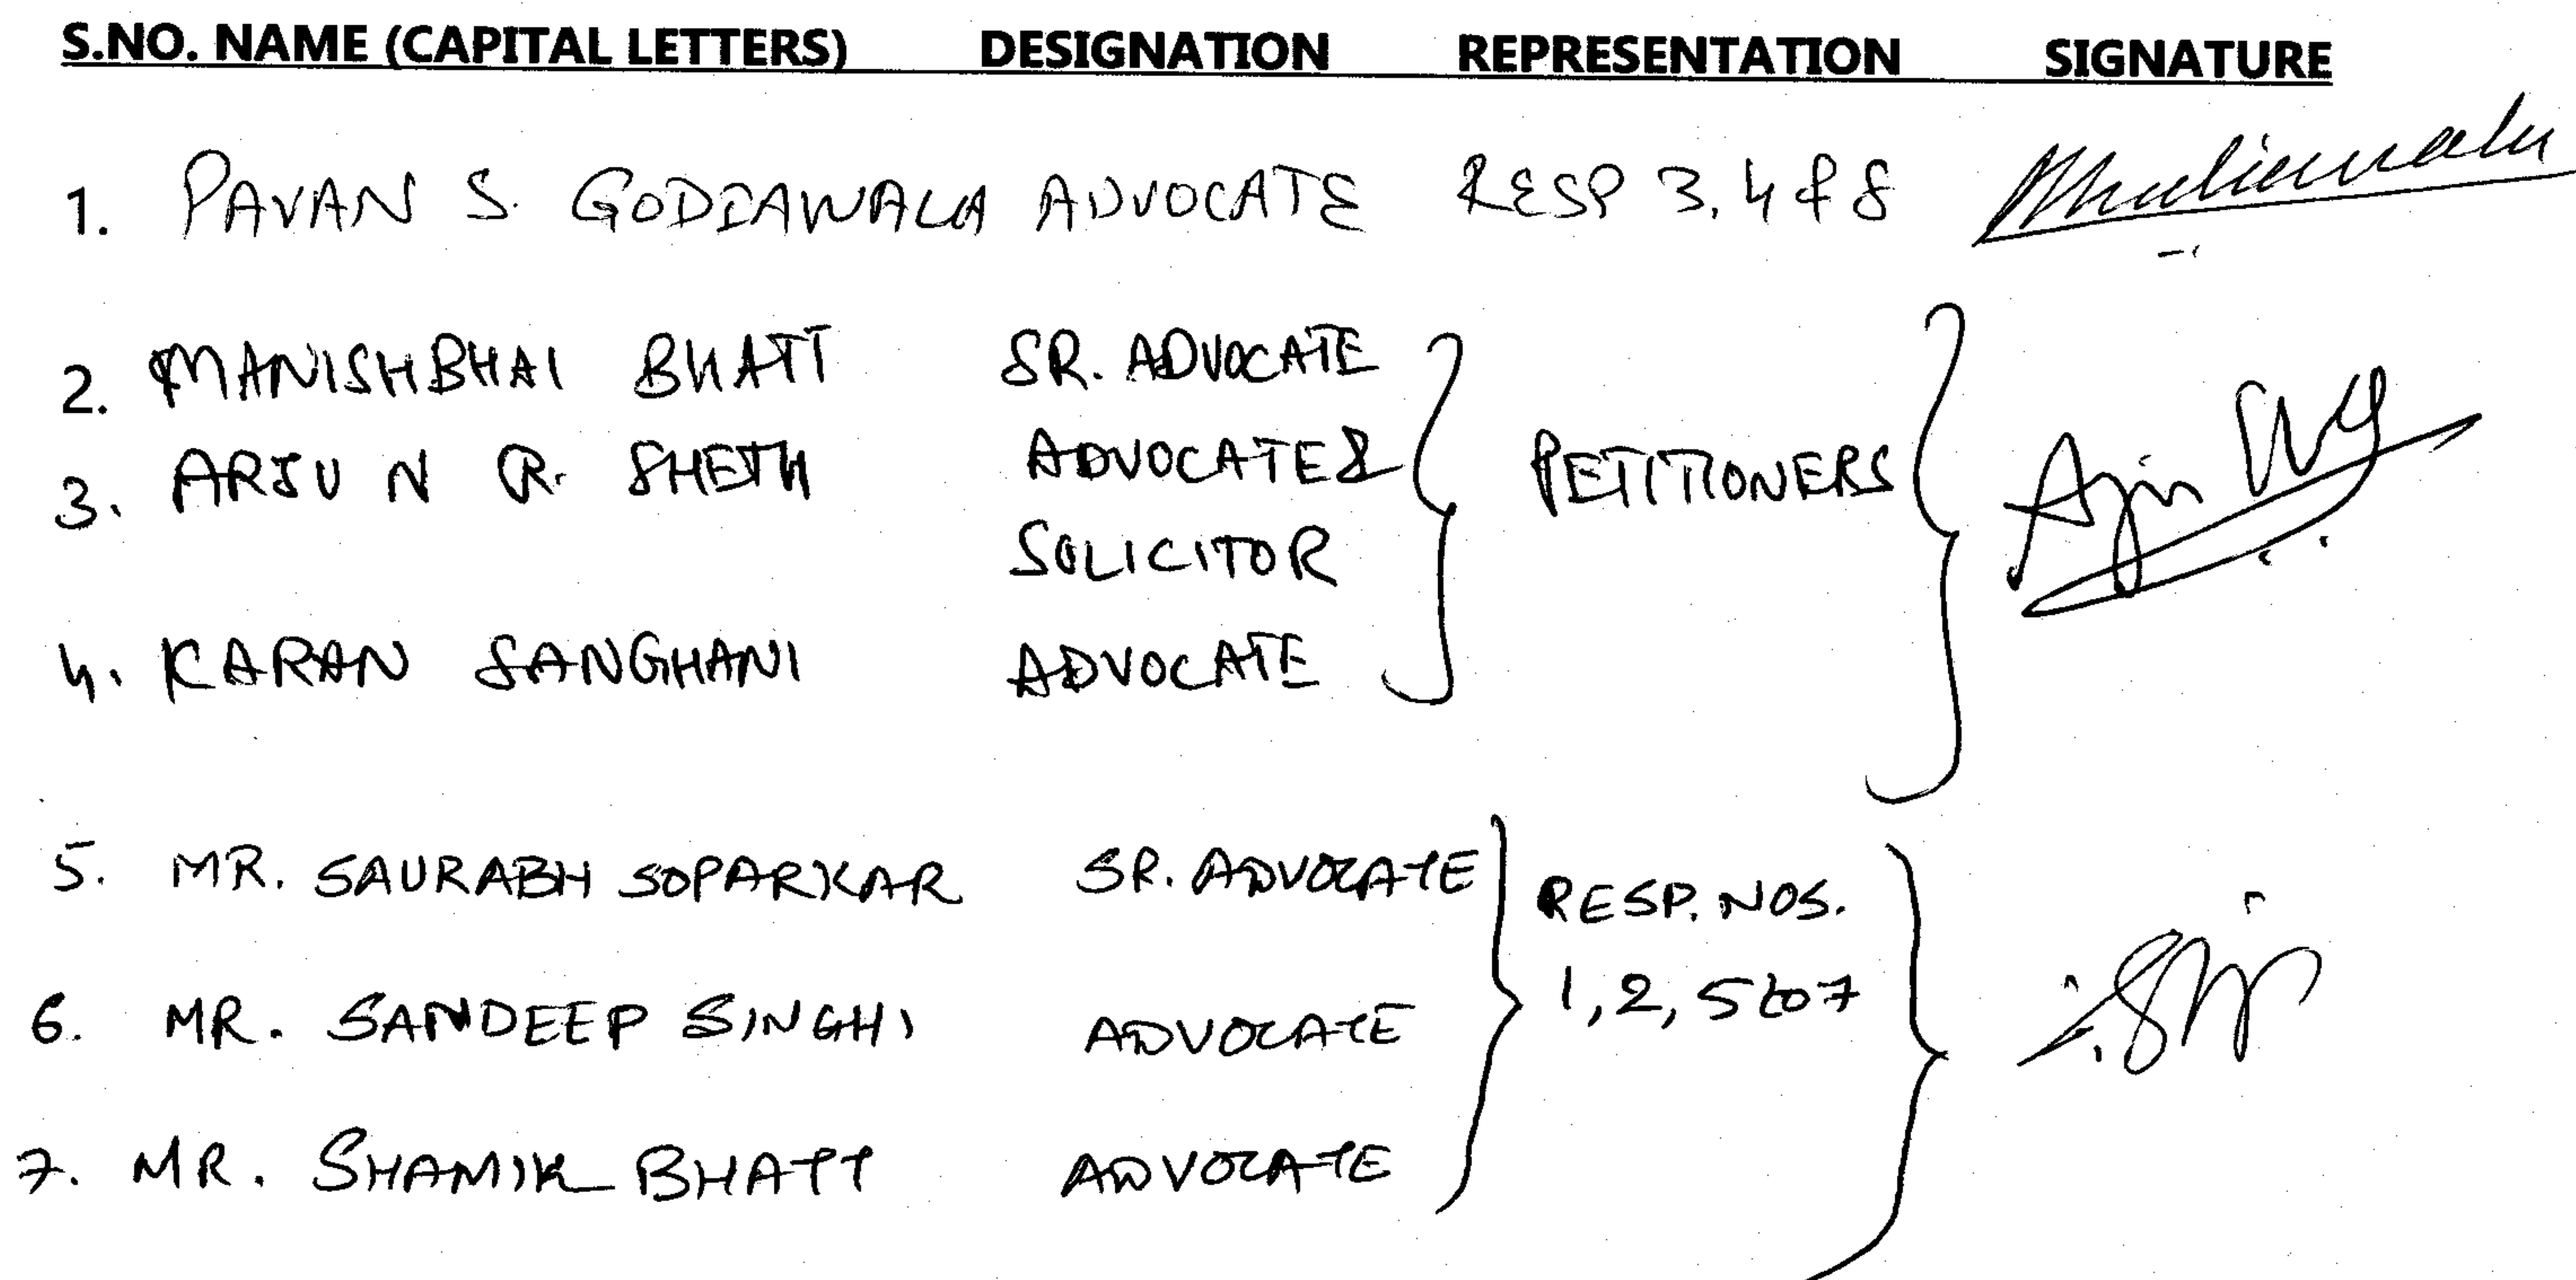 S.NO. NAME (CAPITAL LETTERS) DESIGNATION REPRESENTATION SIGNATURE
1. PAVAN S. GODIAWALA ADVOCATE RESP 3, 4 & 8
2. MANISHBHAI BHATT SR. ADVOCATE
3. ARJUN R. SHETH ADVOCATE & PETITIONERS
SOLICITOR
4. KARAN SANGHANI ADVOCATE
5. MR. SAURABH SOPARKAR SR. ADVOCATE RESP. NOS.
6. MR. SANDEEP SINGHI ADVOCATE 1, 2, 5 to 7
7. MR. SHAMIK BHATT ADVOCATE